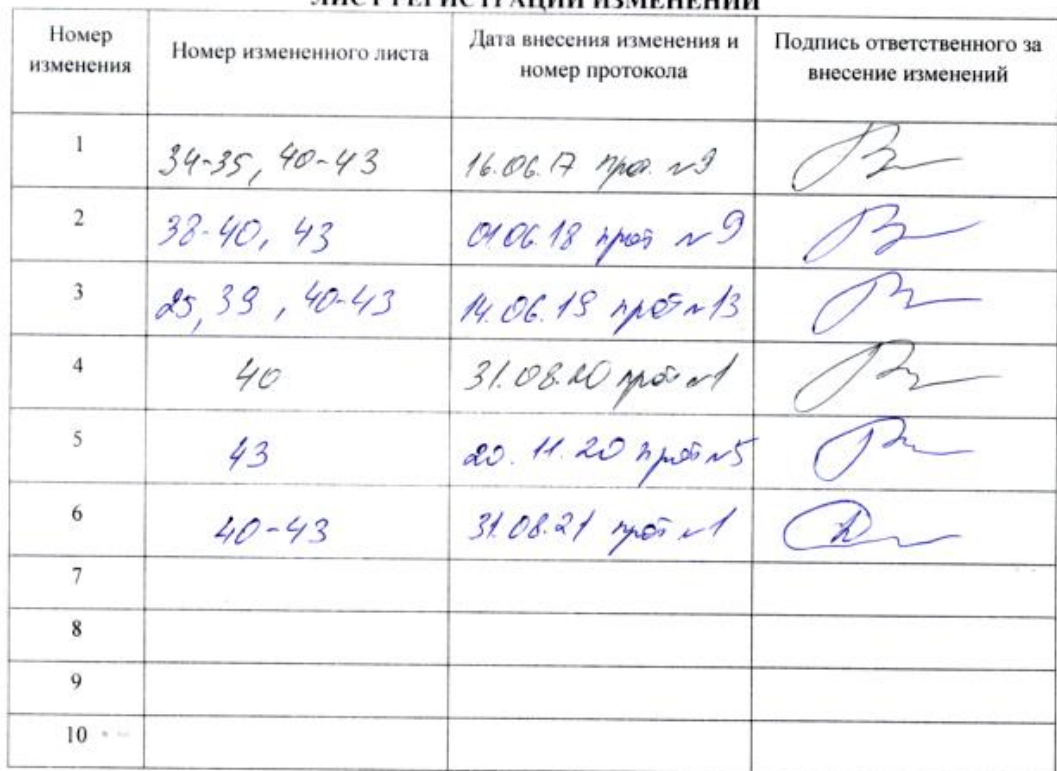 ЛИСТ РЕГИСТРАЦИИ ИЗМЕНЕНИЙ
Номер изменения Номер измененного листа Дата внесения изменения и номер протокола Подпись ответственного за внесение изменений
1 34-35, 40-43 16.06.17 прот. №9
2 38-40, 43 01.06.18 прот №9
3 25, 39, 40-43 14.06.19 прот №13
4 40 31.08.20 прот №1
5 43 20.11.20 прот №5
6 40-43 31.08.21 прот №1
7
8
9
10